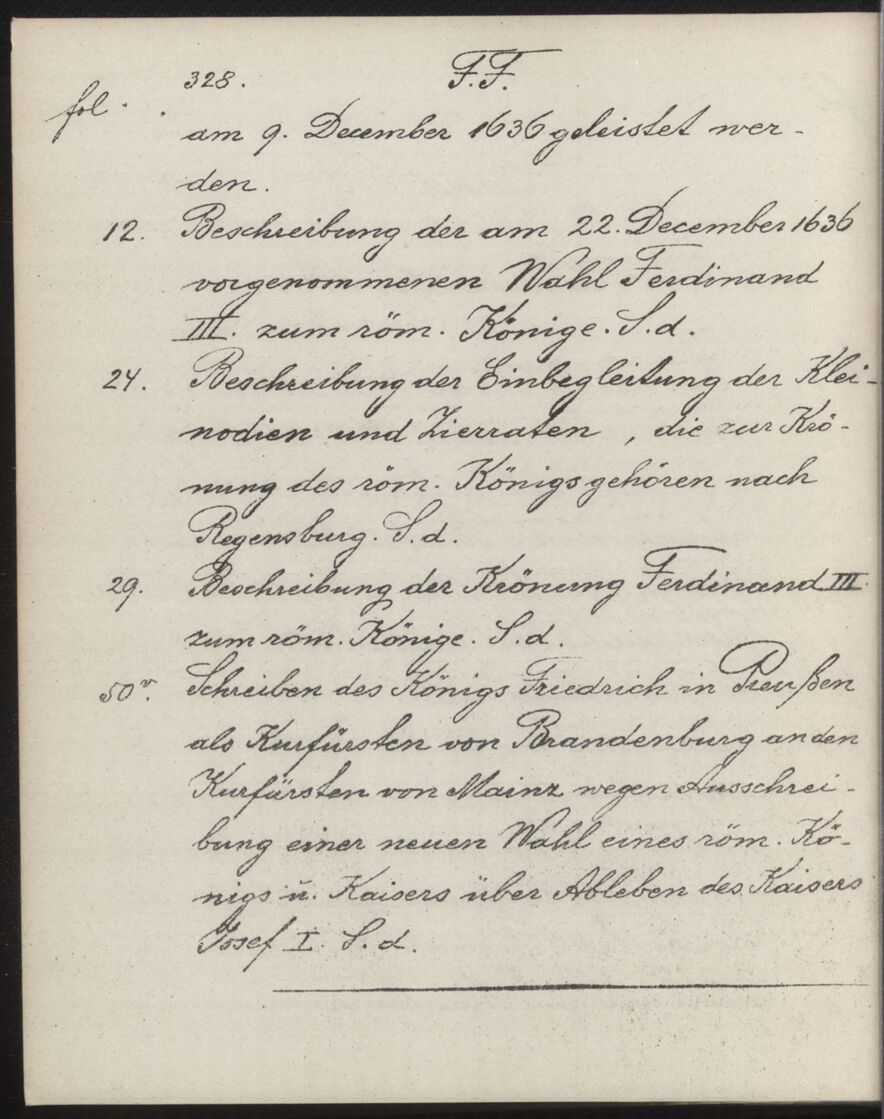 328. F.F.
fol.
am 9. December 1636 geleistet wer-
den.
12. Beschreibung der am 22. December 1636
vorgenommenen Wahl Ferdinand
III. zum röm. Könige. S. d.
24. Beschreibung der Einbegleitung der Klei-
nodien und Zierraten, die zur Krö-
nung des röm. Königs gehören nach
Regensburg. S. d.
29. Beschreibung der Krönung Ferdinand III.
zum röm. Könige. S. d.
50v. Schreiben des Königs Friedrich in Preußen
als Kurfürsten von Brandenburg an den
Kurfürsten von Mainz wegen Ausschrei-
bung einer neuen Wahl eines röm. Kö-
nigs u. Kaisers über Ableben des Kaisers
Josef I. S. d.